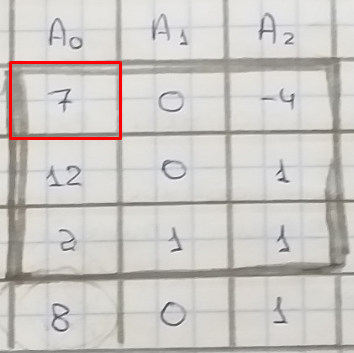 A0 A1 A2
7 0 -4
12 0 1
2 1 1
8 0 1